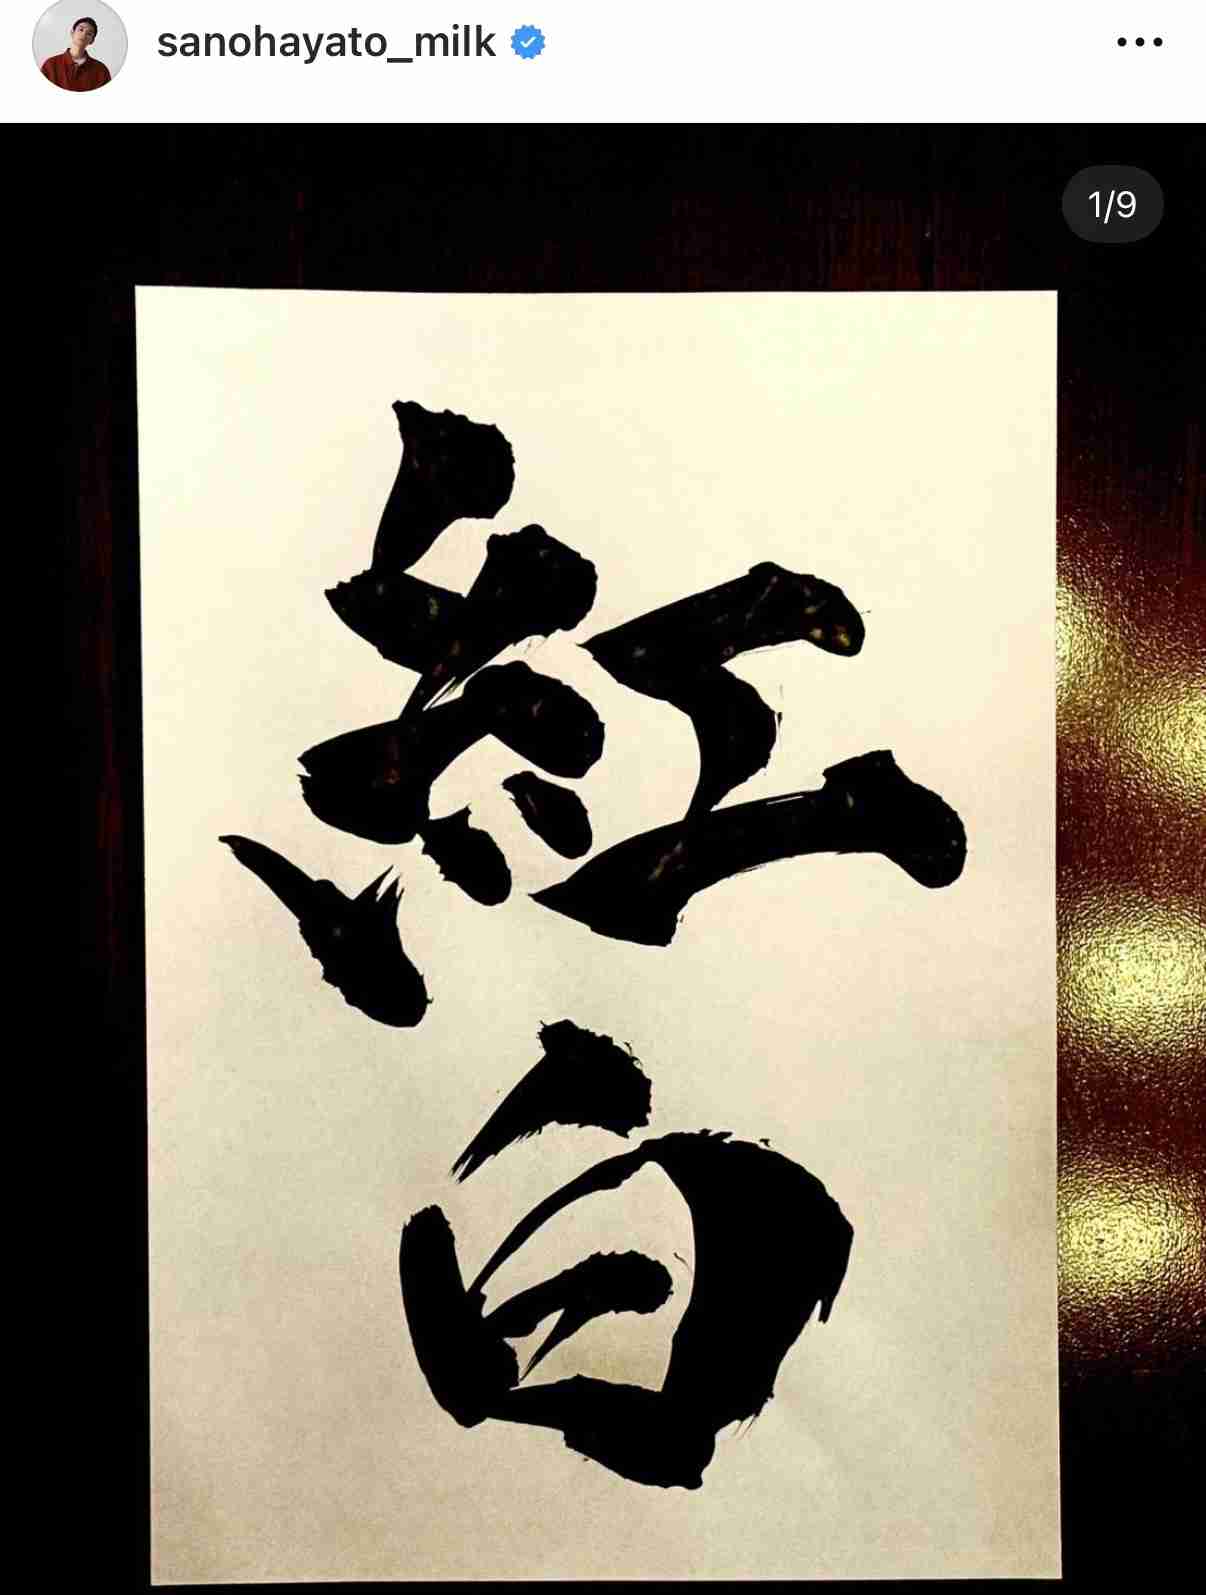 sanohayato_milk
1/9
紅
白